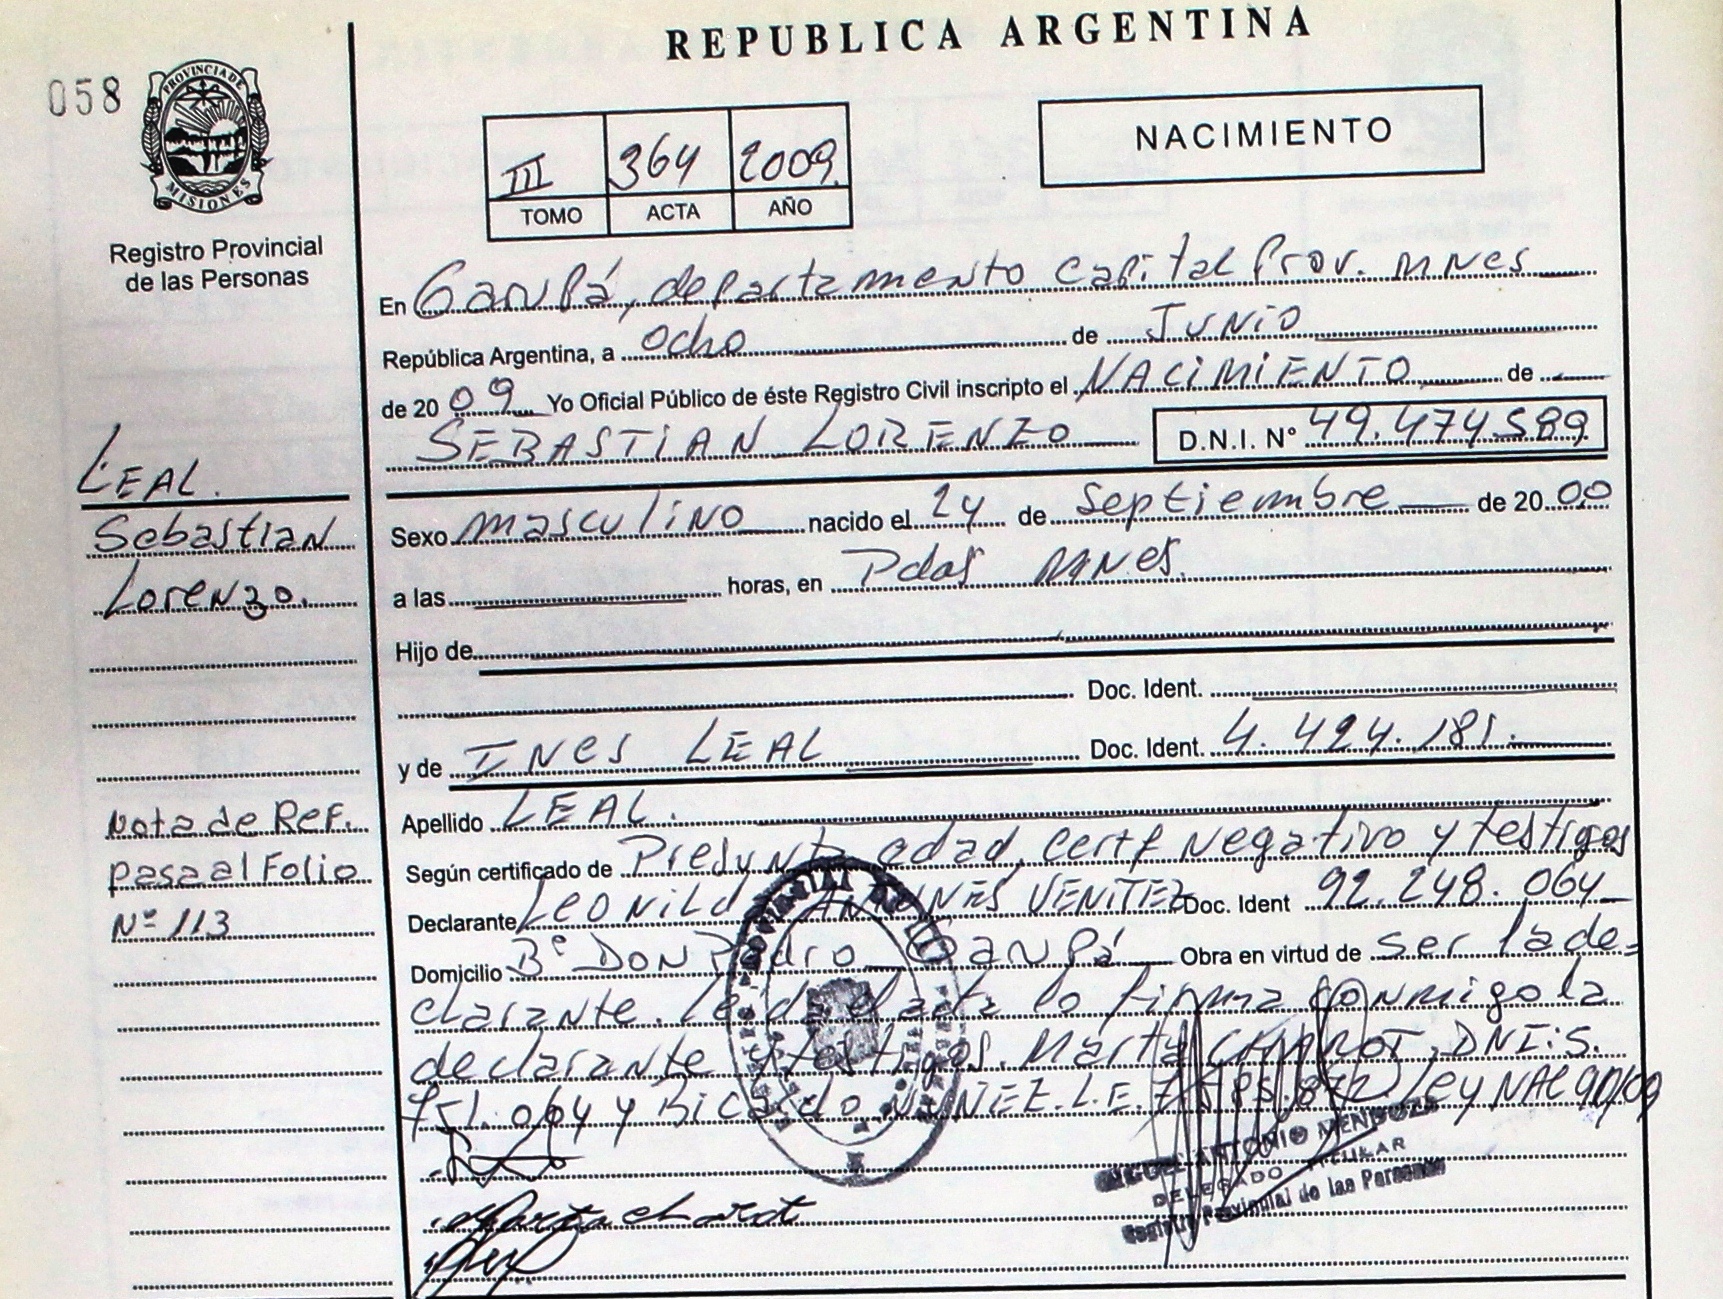 REPUBLICA ARGENTINA
058
PROVINCIA DE
MISIONES
Registro Provincial
de las Personas
III 364 2009
TOMO ACTA AÑO
NACIMIENTO
En Garupá, departamento Capital Prov. Mnes
República Argentina, a ocho de Junio
de 2009 Yo Oficial Público de éste Registro Civil inscripto el NACIMIENTO de
SEBASTIAN LORENZO D.N.I. Nº 49.474.589
LEAL.
Sebastian
Lorenzo.
Sexo masculino nacido el 24 de septiembre de 2000
a las horas, en Pdas Mnes.
Hijo de
Doc. Ident.
y de INES LEAL Doc. Ident. 4.424.181.
Apellido LEAL.
Nota de Ref.
pasa al Folio
Nº 113
Según certificado de Presunta edad, certf negativo y testigos
Declarante Leonilda ANTUNES VENITEZ Doc. Ident 92.248.064
Domicilio Bº DON Pedro Garupá Obra en virtud de ser la de=
clarante. Leida el acta lo firma conmigo la
declarante y testigos. Marta CHAROT, DNI: 5.
751.064 y Ricardo NUÑEZ. L.E. Ley NAC 90/09
Marta charot
MIGUEL ANTONIO MENDOZA
DELEGADO TITULAR
Registro Provincial de las Personas